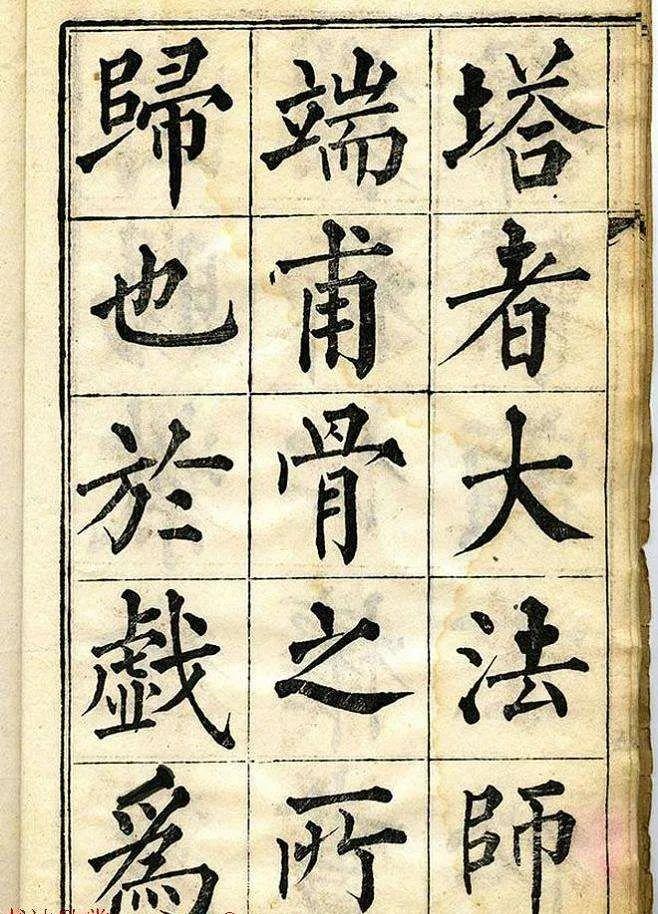 塔者大法師
端甫骨之所
歸也於戱爲